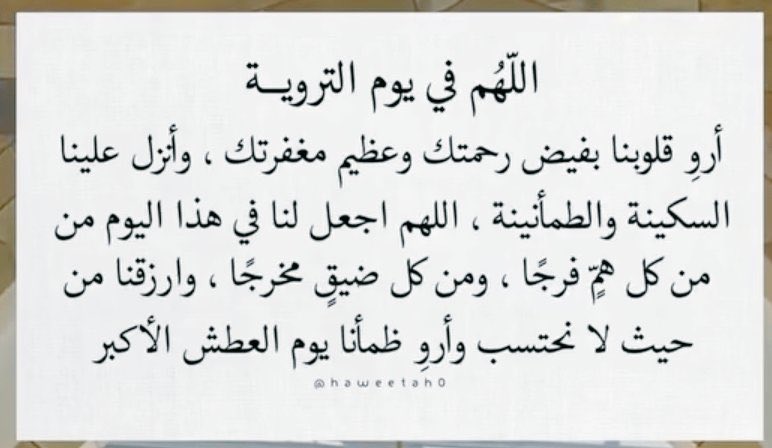 اللّهُم في يوم الترويـــة
أروِ قلوبنا بفيض رحمتك وعظيم مغفرتك ، وأنزل علينا
السكينة والطمأنينة ، اللهم اجعل لنا في هذا اليوم من
من كل همٍّ فرجًا ، ومن كل ضيقٍ مخرجًا ، وارزقنا من
حيث لا نحتسب وأروِ ظمأنا يوم العطش الأكبر
@haweetah0